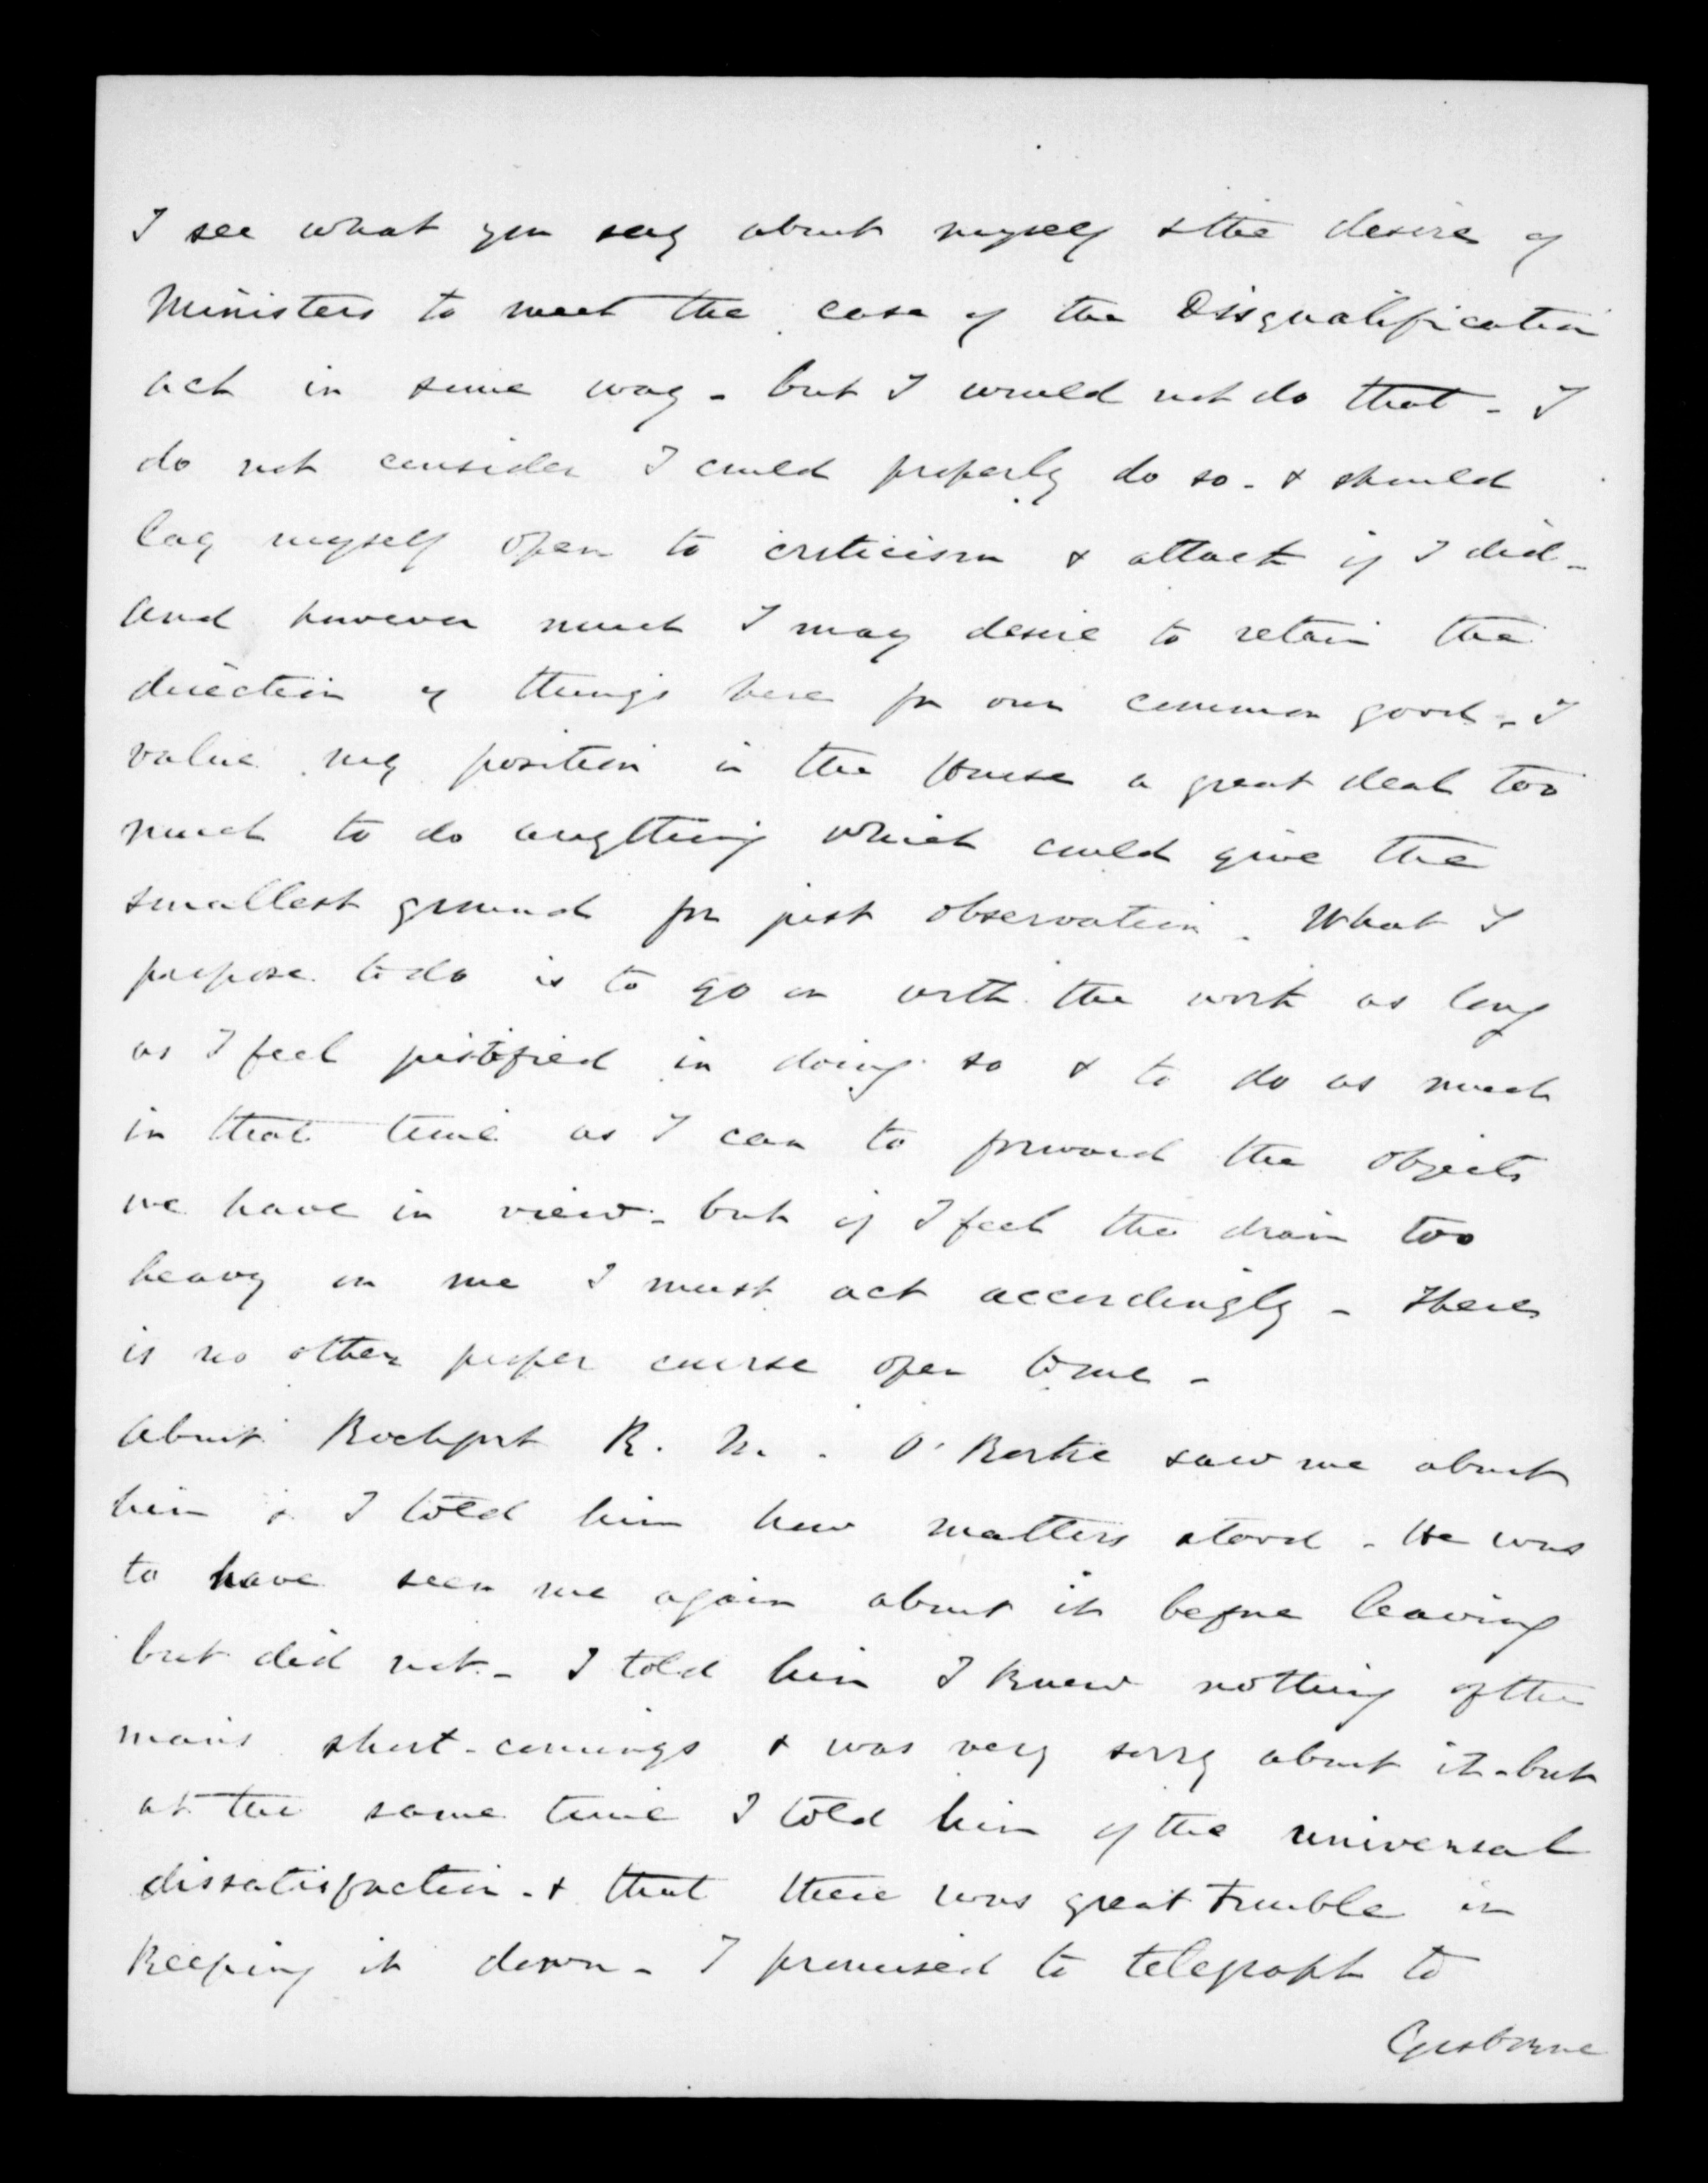 I see what you say about myself & the desire of
Ministers to meet the case of the Disqualification
act in some way - but I would not do that - I
do not consider I could properly do so - & should
lay myself open to criticism & attack if I did -
and however much I may desire to retain the
direction of things here for our common good - I
value my position in the House a great deal too
much to do anything which could give the
smallest ground for just observation. What I
propose to do is to go on with the work as long
as I feel justified in doing so & to do as much
in that time as I can to forward the objects
we have in view - but if I feel the drain too
heavy on me I must act accordingly - There
is no other proper course open to me -
About Rochfort R. M. O'Rorke saw me about
him & I told him how matters stood - He was
to have seen me again about it before leaving
but did not - I told him I knew nothing of the
man's short-comings & was very sorry about it - but
at the same time I told him of the universal
dissatisfaction - & that there was great trouble in
keeping it down - I promised to telegraph to
Gisborne